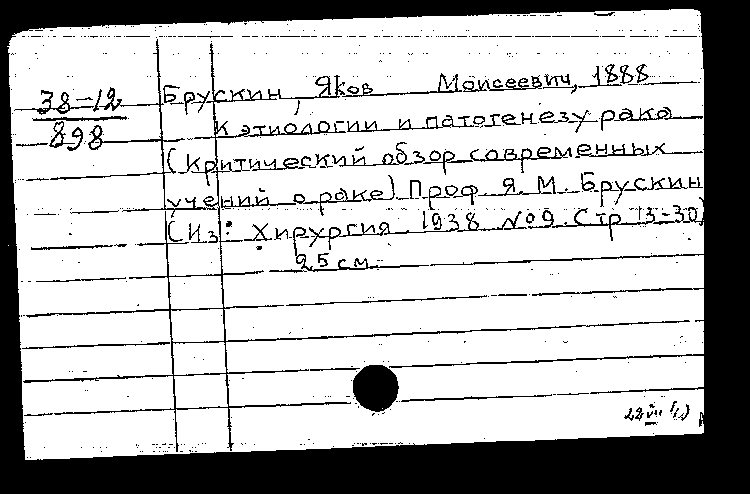 38-12
898
Брускин, Яков Моисеевич, 1888
К этиологии и патогенезу рака
(Критический обзор современных
учений о раке) Проф. Я. М. Брускин
(Из: Хирургия. 1938 №9. Стр 13-30)
25 см.
22 VII